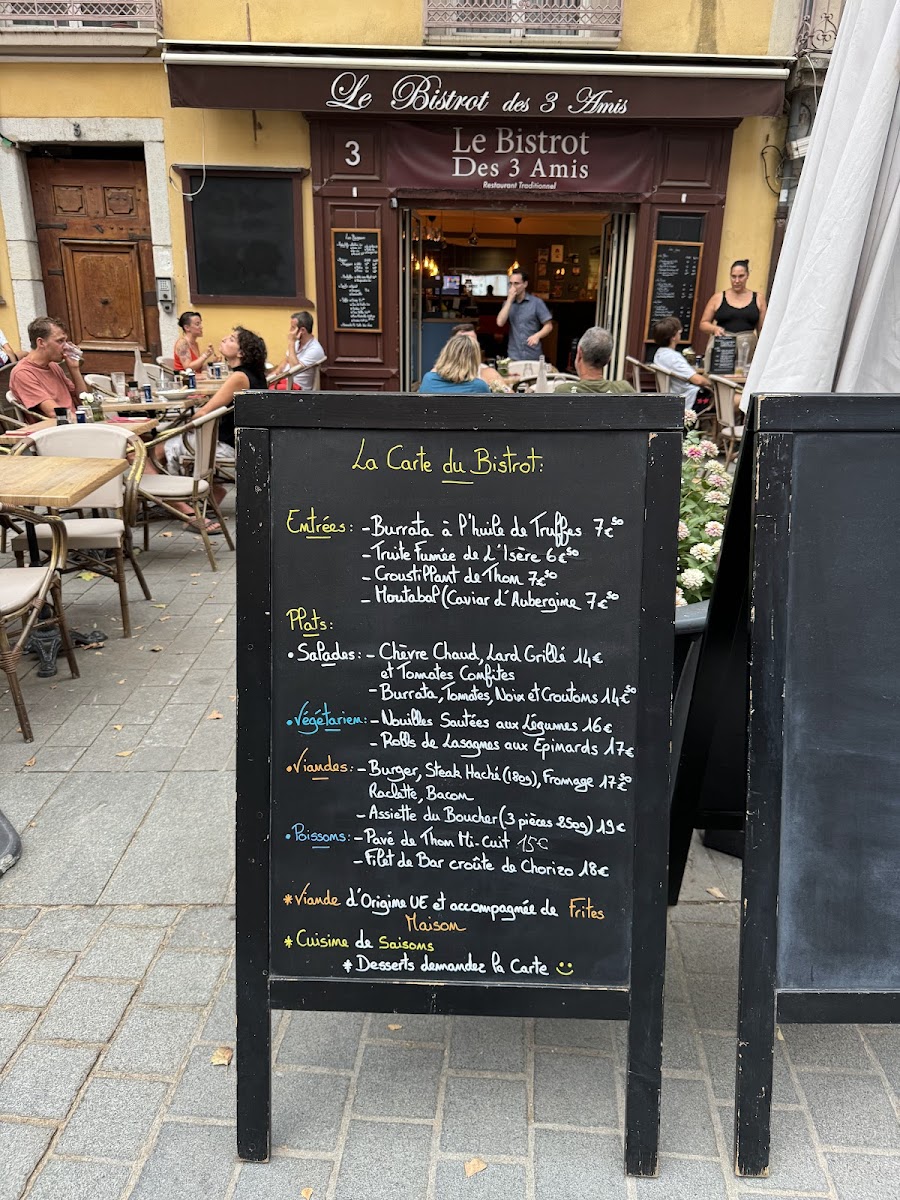 Le Bistrot des 3 Amis
3
Le Bistrot
Des 3 Amis
Restaurant Traditionnel
La Carte du Bistrot:
Entrées: - Burrata à l'huile de Truffes 7€50
- Truite Fumée de L'Isère 6€50
- Croustillant de Thon 7€50
- Moutabal (Caviar d'Aubergine 7€50
Plats:
• Salades: - Chèvre Chaud, Lard Grillé 14€
et Tomates Confites
- Burrata, Tomates, Noix et Croutons 14€50
• Végétarien: - Nouilles Sautées aux Légumes 16€
- Rolls de Lasagnes aux Epinards 17€
• Viandes: - Burger, Steak Haché (180g), Fromage 17€50
Raclette, Bacon
- Assiette du Boucher (3 pièces 250g) 19€
• Poissons: - Pavé de Thon Mi-Cuit 15€
- Filet de Bar croûte de Chorizo 18€
* Viande d'Origine UE et accompagnée de Frites
Maison
* Cuisine de Saisons
* Desserts demandez la Carte